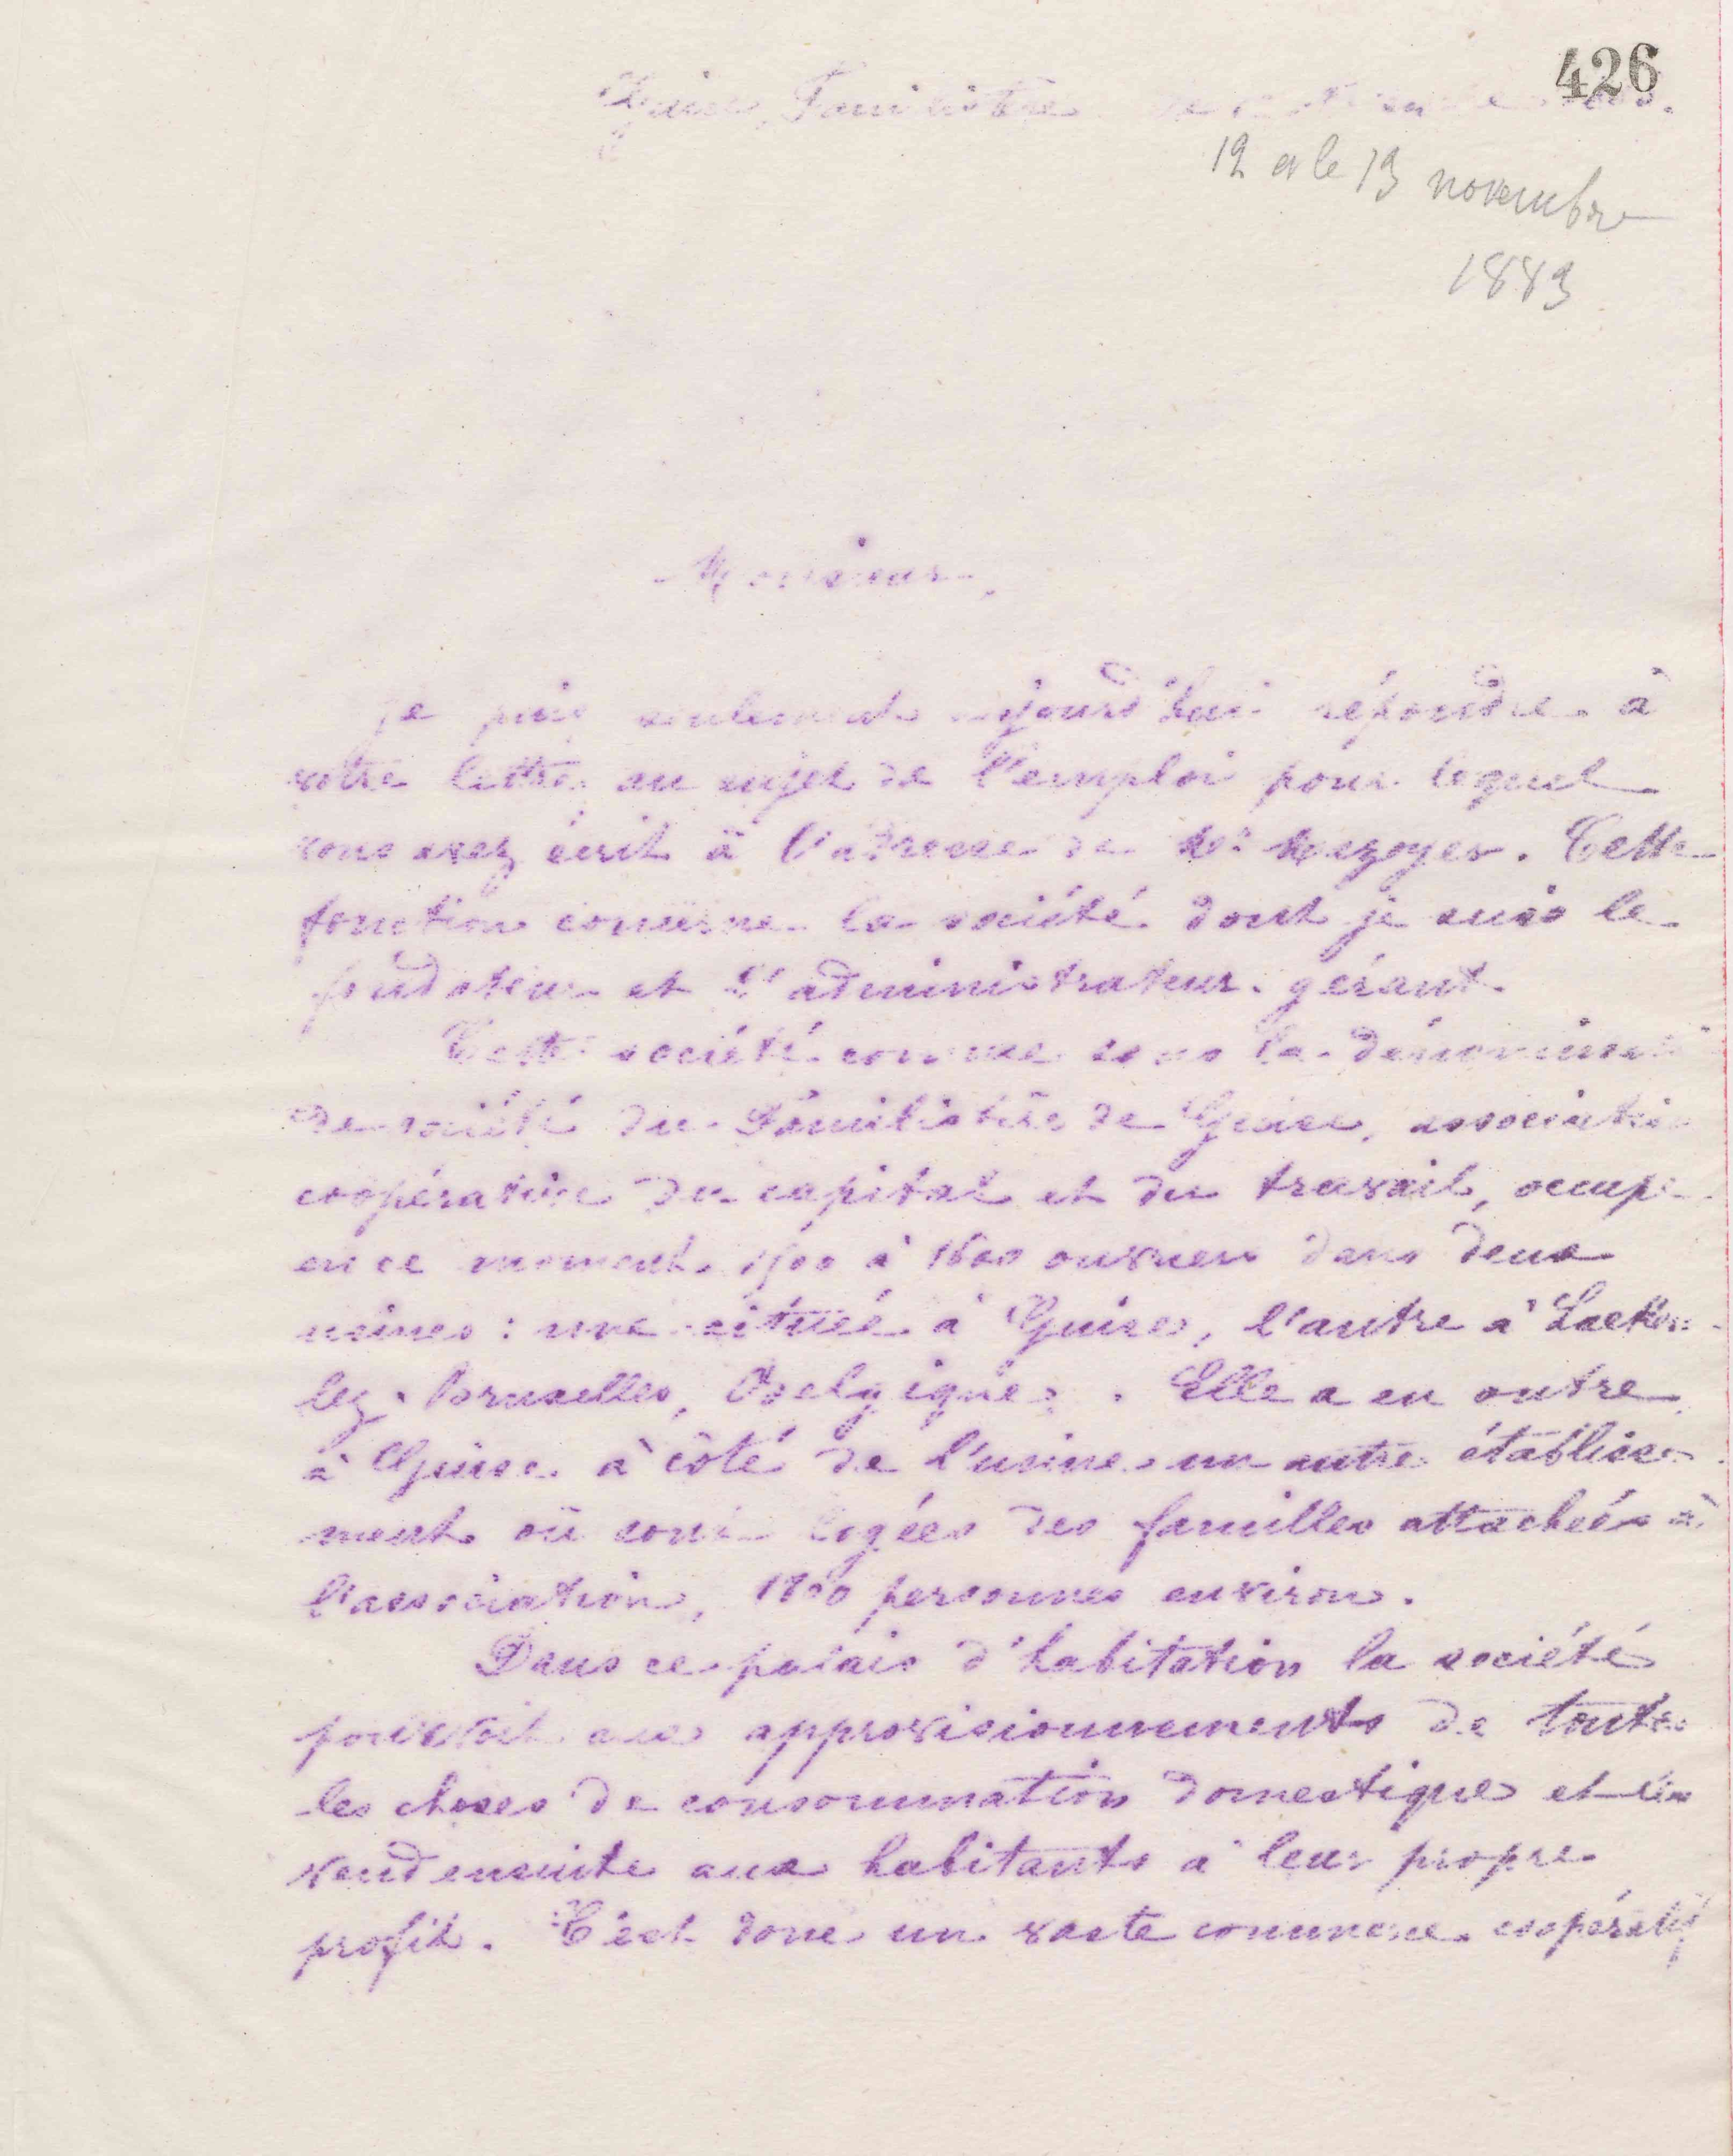 426
Guise, Familistère
12 et le 13 novembre
1883
Monsieur,
Je puis seulement aujourd'hui répondre à
votre lettre au sujet de l'emploi pour lequel
vous avez écrit à l'adresse de Mr. Cette
fonction concerne la société dont je suis le
fondateur et l'administrateur-gérant.
Cette société connue sous la dénominati
de société du Familistère de Guise, associati
coopérative du capital et du travail, occupe
en ce moment 1500 à 1600 ouvriers dans deux
usines : une située à Guise, l'autre à Laeken-
lez-Bruxelles, Belgique. Elle a en outre
à Guise à côté de l'usine un autre établisse-
ment où sont logées des familles attachées à
l'association, 1200 personnes environ.
Dans ce palais d'habitation la société
pourvoit aux approvisionnements de toutes
les choses de consommation domestique et les
vend ensuite aux habitants à leur propre
profit. C'est donc un vaste commerce coopératif